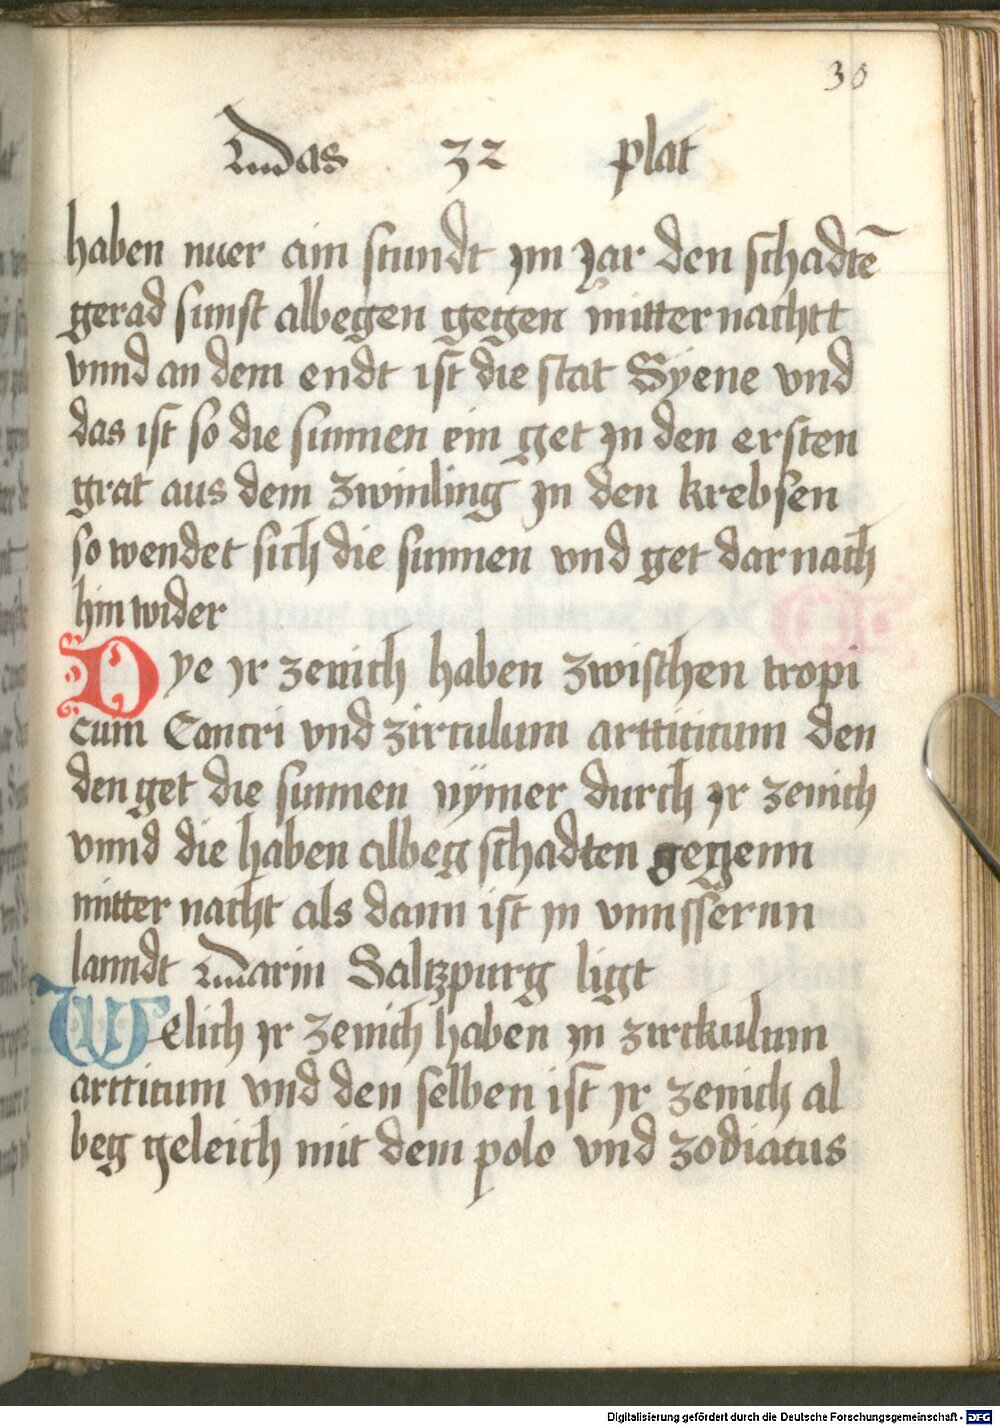 30
Das 32 plat
haben nuer ain stundt jm jar den schadtē
gerad sunst albegen gegen mitternachtt
vnnd an dem endt ist die stat Syene vnd
das ist so die sunnen ein get jn den ersten
grat aus dem zwinling jn den krebsen
so wendet sich die sunnen vnd get dar nach
hin wider
Dye jr zenich haben zwischen tropi
cum Cancri vnd zirculum artticicum den
den get die sunnen nÿmer durch jr zenich
vnnd die haben albeg schadten gegenn
mitter nacht als dann ist jn vnnssernn
lanndt Darin Saltzpurg ligt
Welich jr zenich haben jn zirckulum
artticum vnd den selben ist jr zenich al
beg geleich mit dem polo vnd zodiacus
Digitalisierung gefördert durch die Deutsche Forschungsgemeinschaft - DFG